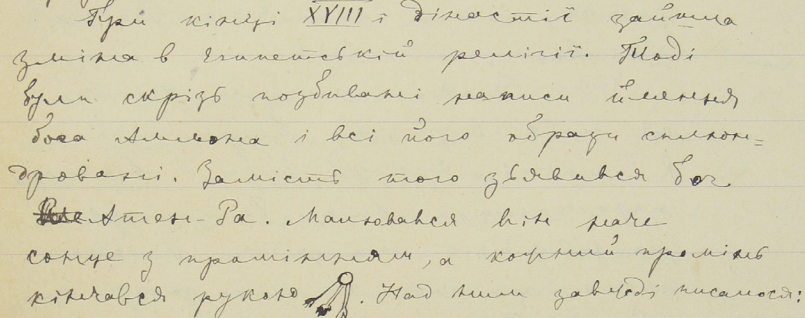 При кінці XVIII ї дінастії зайшла
зміна в єгипетській релігії. Тоді
були скрізь позбивані написи ймення
бога Аммона і всі його образи сплюн=
дровані. Замість того зъявився бог
Атен-Ра. Малювався він наче
сонце з промінням, а кожний промінь
кінчався рукою. Над ним завжді писалося: